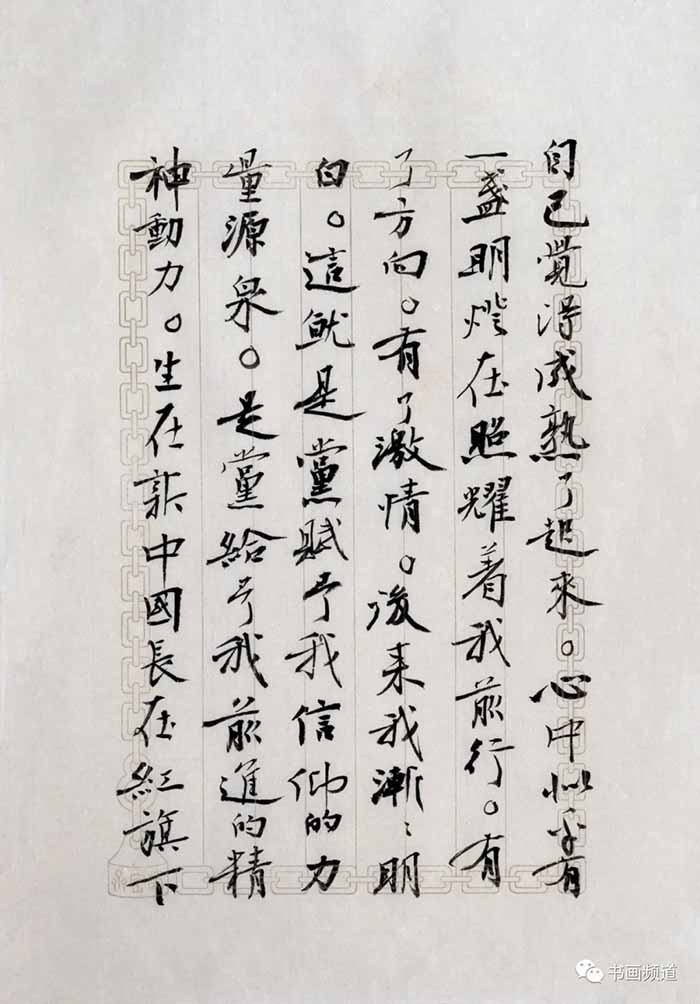 自己覺得成熟了起來。心中似乎有
一盞明燈在照耀着我前行。有
了方向。有了激情。後来我漸〻明
白。這就是黨賦予我信仰的力
量源泉。是黨給予我前進的精
神動力。生在新中國長在紅旗下
书画频道